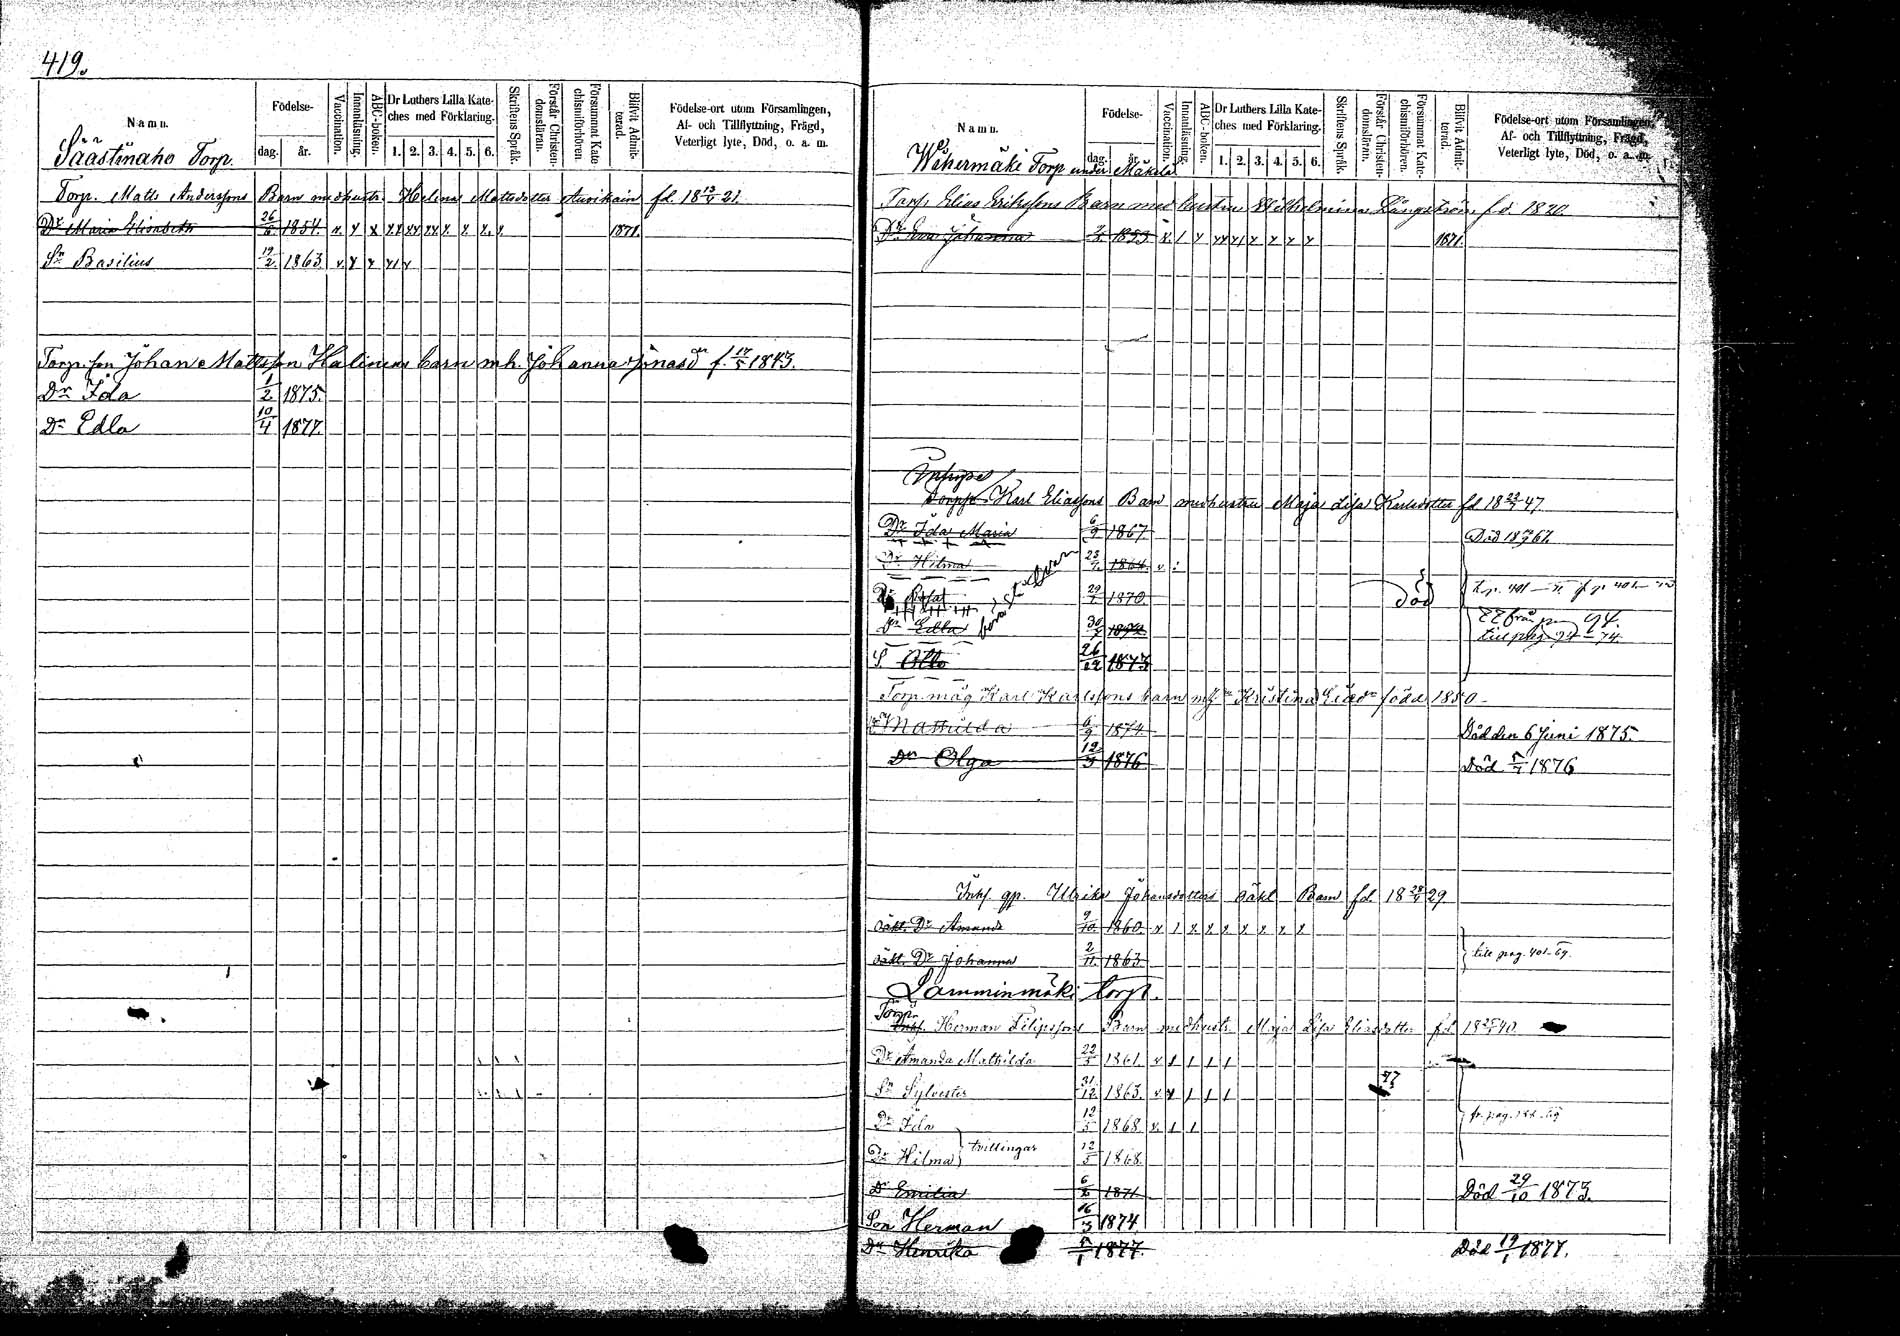 419.
Namn.
Säästinaho Torp.
Födelse-
dag. år.
Vaccination.
Innanläsning.
ABC-boken.
Dr Luthers Lilla Kate-
ches med Förklaring.
1. 2. 3. 4. 5. 6.
Skriftens Språk.
Förstår Christen-
domsläran.
Försummat Kate-
chismiförhören.
Blifvit Admit-
terad.
Födelse-ort utom Församlingen,
Af- och Tillflyttning, Frägd,
Veterligt lyte, Död, o. a. m.
Torp. Matts Anderssons Barn med hustr. Helena Mattsdotter fd. 18 21.
Dr Maria Elisabeth 26/6 1854. x. x x xx xx xx x x x. x 1871.
Sn Basilius 19/2. 1863. v. x x x1 x
Torp. son Johan Mattsson Halinens barn m h. Johanna Jonasdr f. 17/5 1843.
Dr Ida 1/2 1875.
Dr Edla 10/4 1877.
Namn.
Torp under Mäkelä
Födelse-
dag. år.
Vaccination.
Innanläsning.
ABC-boken.
Dr Luthers Lilla Kate-
ches med Förklaring.
1. 2. 3. 4. 5. 6.
Skriftens Språk.
Förstår Christen-
domsläran.
Försummat Kate-
chismiförhören.
Blifvit Admit-
terad.
Födelse-ort utom Församlingen,
Af- och Tillflyttning, Frägd,
Veterligt lyte, Död, o. a. m.
Torp. Elias Erikssons Barn med hustru Wilhelmina Långström f.d. 1820.
Dr Eva Johanna 1853. x. 1 x xx x1 x x x x 1871.
Karl Eliassons Barn med hustru Maja Lisa Karlsdotter fd 18 47.
Dr Ida Maria 6/9 1867 Död 67.
Dr Hilma 1868. v.
Dr Rosa 1870. död
Dr Edla 30/7 1872
från pag 94.
till pag. 94 - 74.
S Otto 26/12 1873
Torp. måg Karl Karlssons barn m h. Kristina född 1850 -
Dr Mathilda 6/9 1874. Död den 6 Juni 1875.
Dr Olga 12/3 1876 Död 1876
Inh. gp. Ulrika Johansdotters oäkt Barn fd. 18 29
oäkt. Dr Amanda 9/10. 1860. x 1 x x x x x x x
oäkt. Dr Johanna 2/11. 1863. till pag. 401-69.
Lamminmäki torp.
Torp.
Inh. Herman Filipssons Barn med hustr. Maja Lisa Eliasdotter fd 18 40.
Dr Amanda Mathilda 22/5 1861. v 1 1 1 1
Sn Sylvester 31/12 1863. v. x 1 1 1 77
Dr Ida 12/5 1868. v. 1 1
tvillingar
Dr Hilma 12/5 1868.
Dr Emilia 1871. Död 29/10 1873.
Son Herman 16/3 1874
Dr Henrika 5/1 1877. Död 19/1 1877.